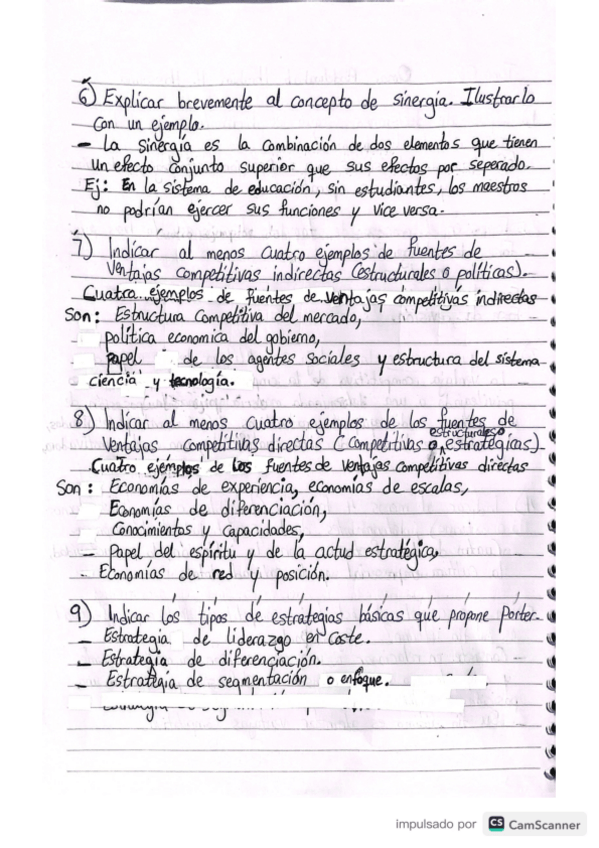 6) Explicar brevemente al concepto de sinergia. Ilustrarlo
con un ejemplo.
- La sinergia es la combinación de dos elementos que tienen
un efecto conjunto superior que sus efectos por seperado.
Ej: En la sistema de educación, sin estudiantes, los maestros
no podrían ejercer sus funciones y vice versa.
7) Indicar al menos cuatro ejemplos de fuentes de
Ventajas competitivas indirectas (estructurales o políticas).
Cuatro ejemplos de fuentes de ventajas competitivas indirectas
Son: Estructura Competitiva del mercado,
política economica del gobierno,
papel de los agentes sociales y estructura del sistema
ciencia y tecnología.
8.) Indicar al menos cuatro ejemplos de los fuentes de
Ventajas competitivas directas (Competitivas o estructurales o estratégicas)
Cuatro ejemplos de los fuentes de ventajas competitivas directas
Son: Economías de experiencia, economías de escalas,
Economías de diferenciación,
Conocimientos y Capacidades,
- Papel del espíritu y de la actud estratégica,
- Economías de red y posición.
9.) Indicar los tipos de estrategias básicas que propone Porter.
- Estrategia de liderazgo en Coste.
- Estrategia de diferenciación.
- Estrategia de segmentación o enfoque.
impulsado por CS CamScanner